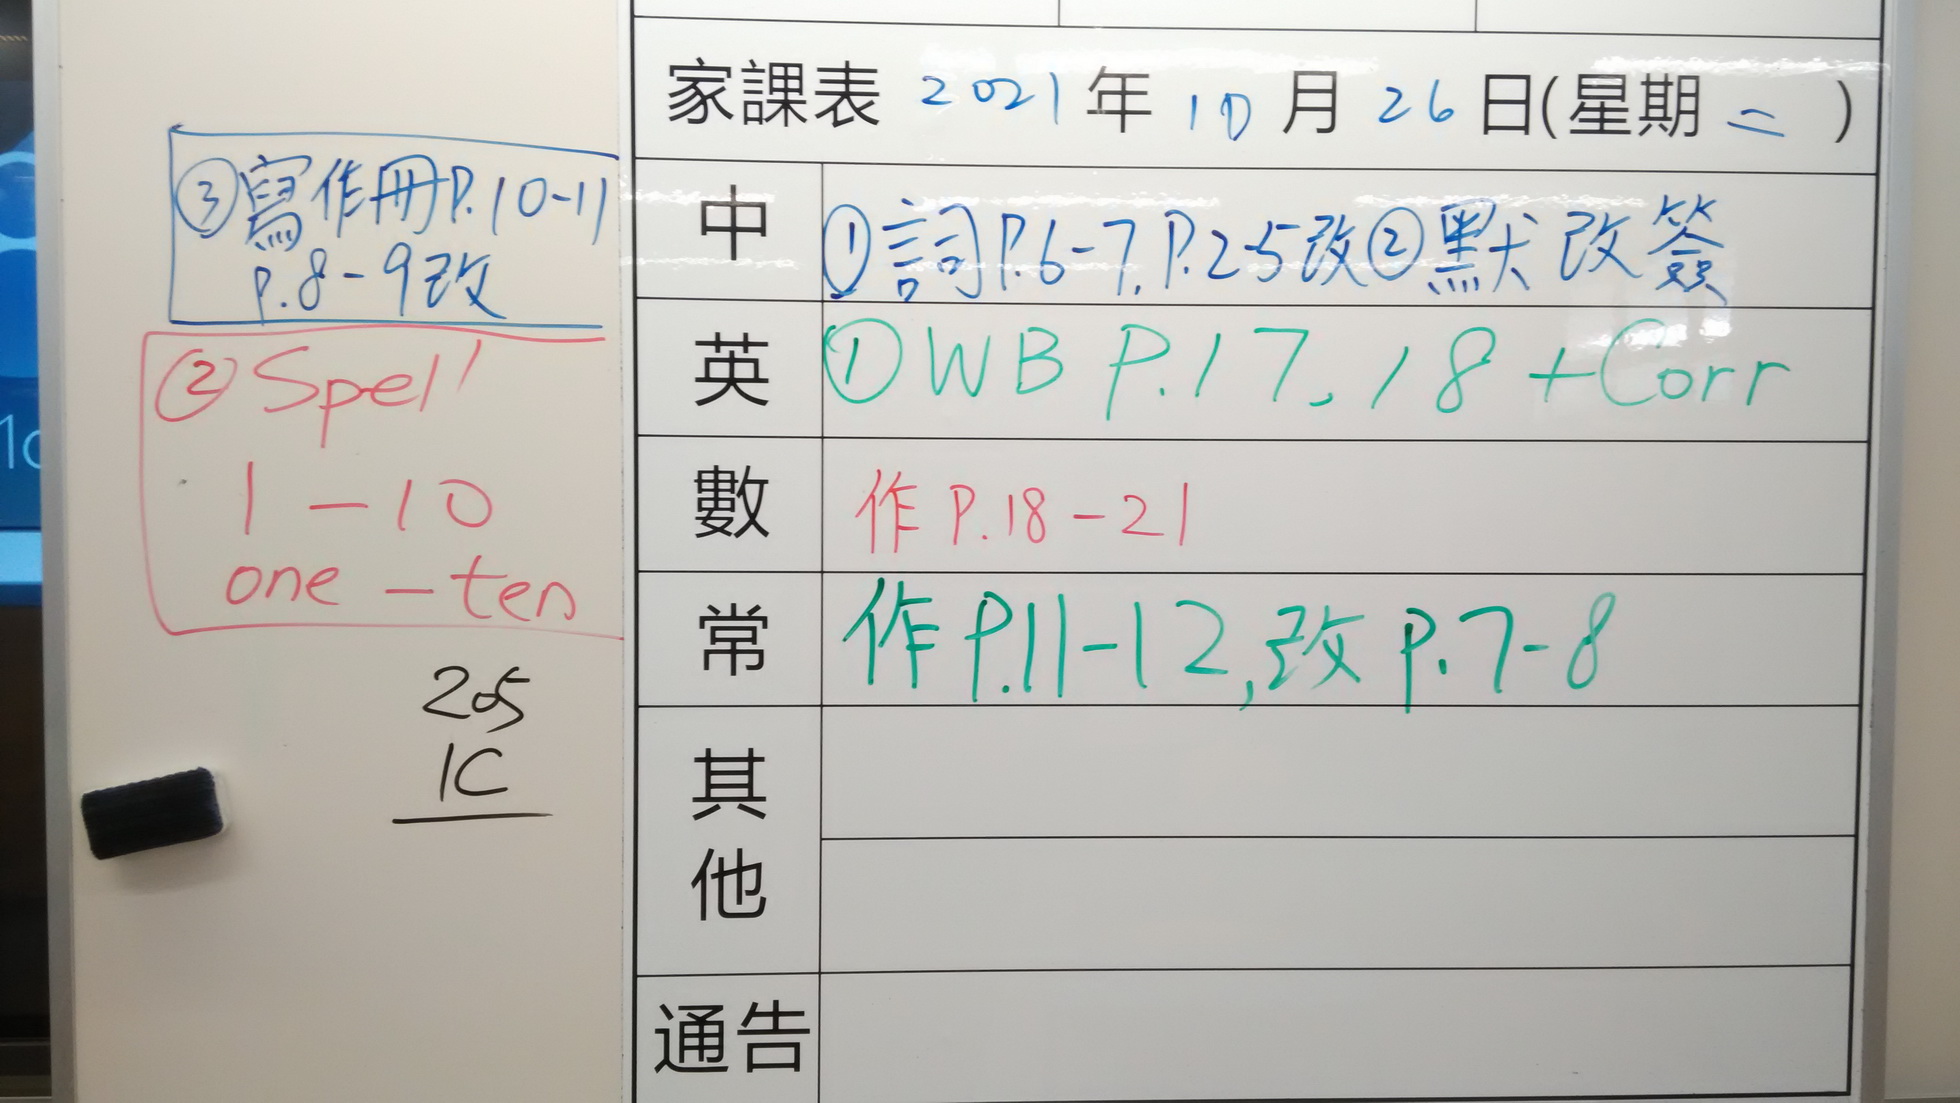 家課表 2021年 10月 26日(星期二)
中 ①詞P.6-7, P.2-5改②默改簽
③寫作冊P.10-11
P.8-9改
英 ①WB P.17, 18 +Corr
②Spell
1-10
one-ten
數 作P.18-21
常 作P.11-12,改P.7-8
其他
通告
205
1C